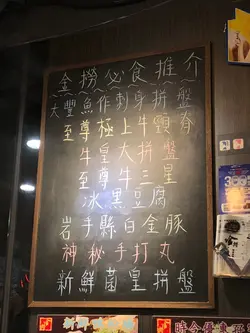 金撈必食推介
大豐魚作刺身拼盤
至尊極上牛頸脊
牛皇大拼盤
至尊牛三皇
冰黑豆腐
岩手縣白金豚
神秘手打丸
新鮮菌皇拼盤